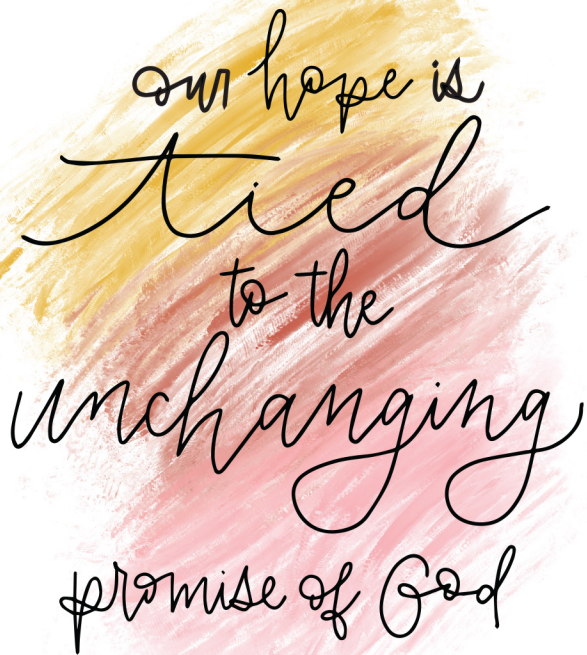 our hope is
tied
to the
unchanging
promise of God